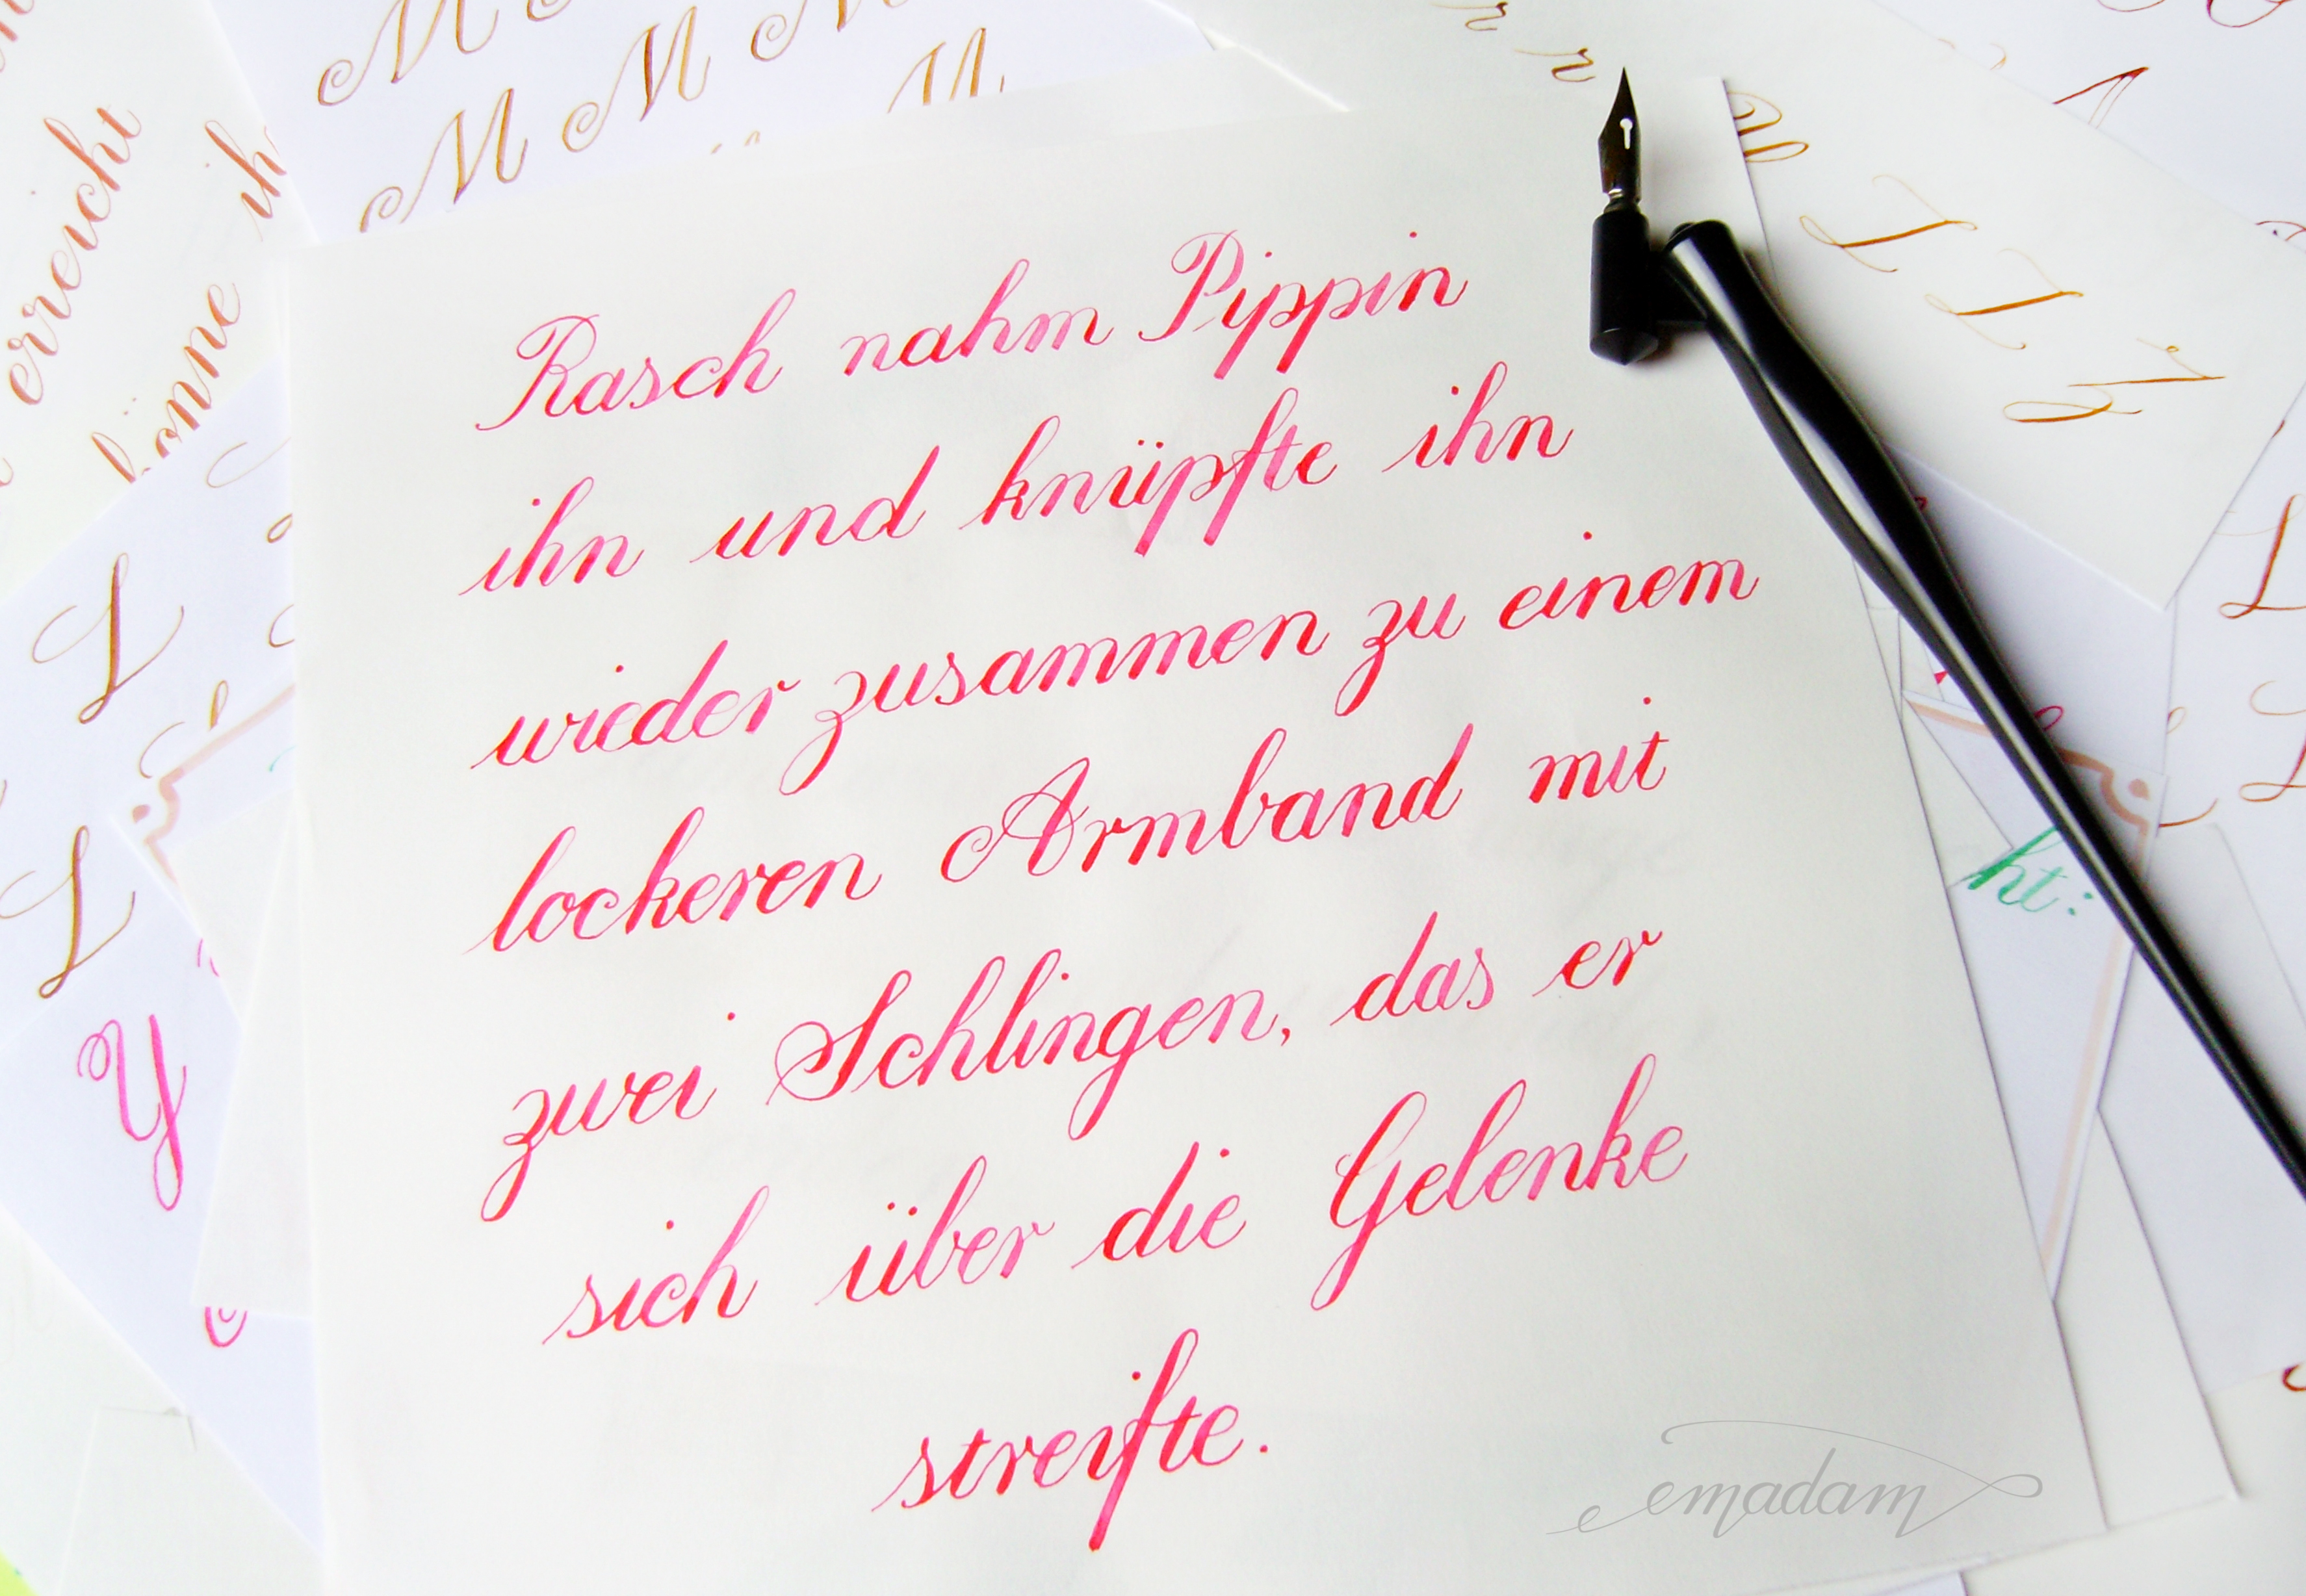 M M M
M M M
erreicht
ih
könne
Rasch nahm Pippin
ihn und knüpfte ihn
wieder zusammen zu einem
lockeren Armband mit
zwei Schlingen, das er
sich über die Gelenke
streifte.
L
L
Y
ht:
emadam